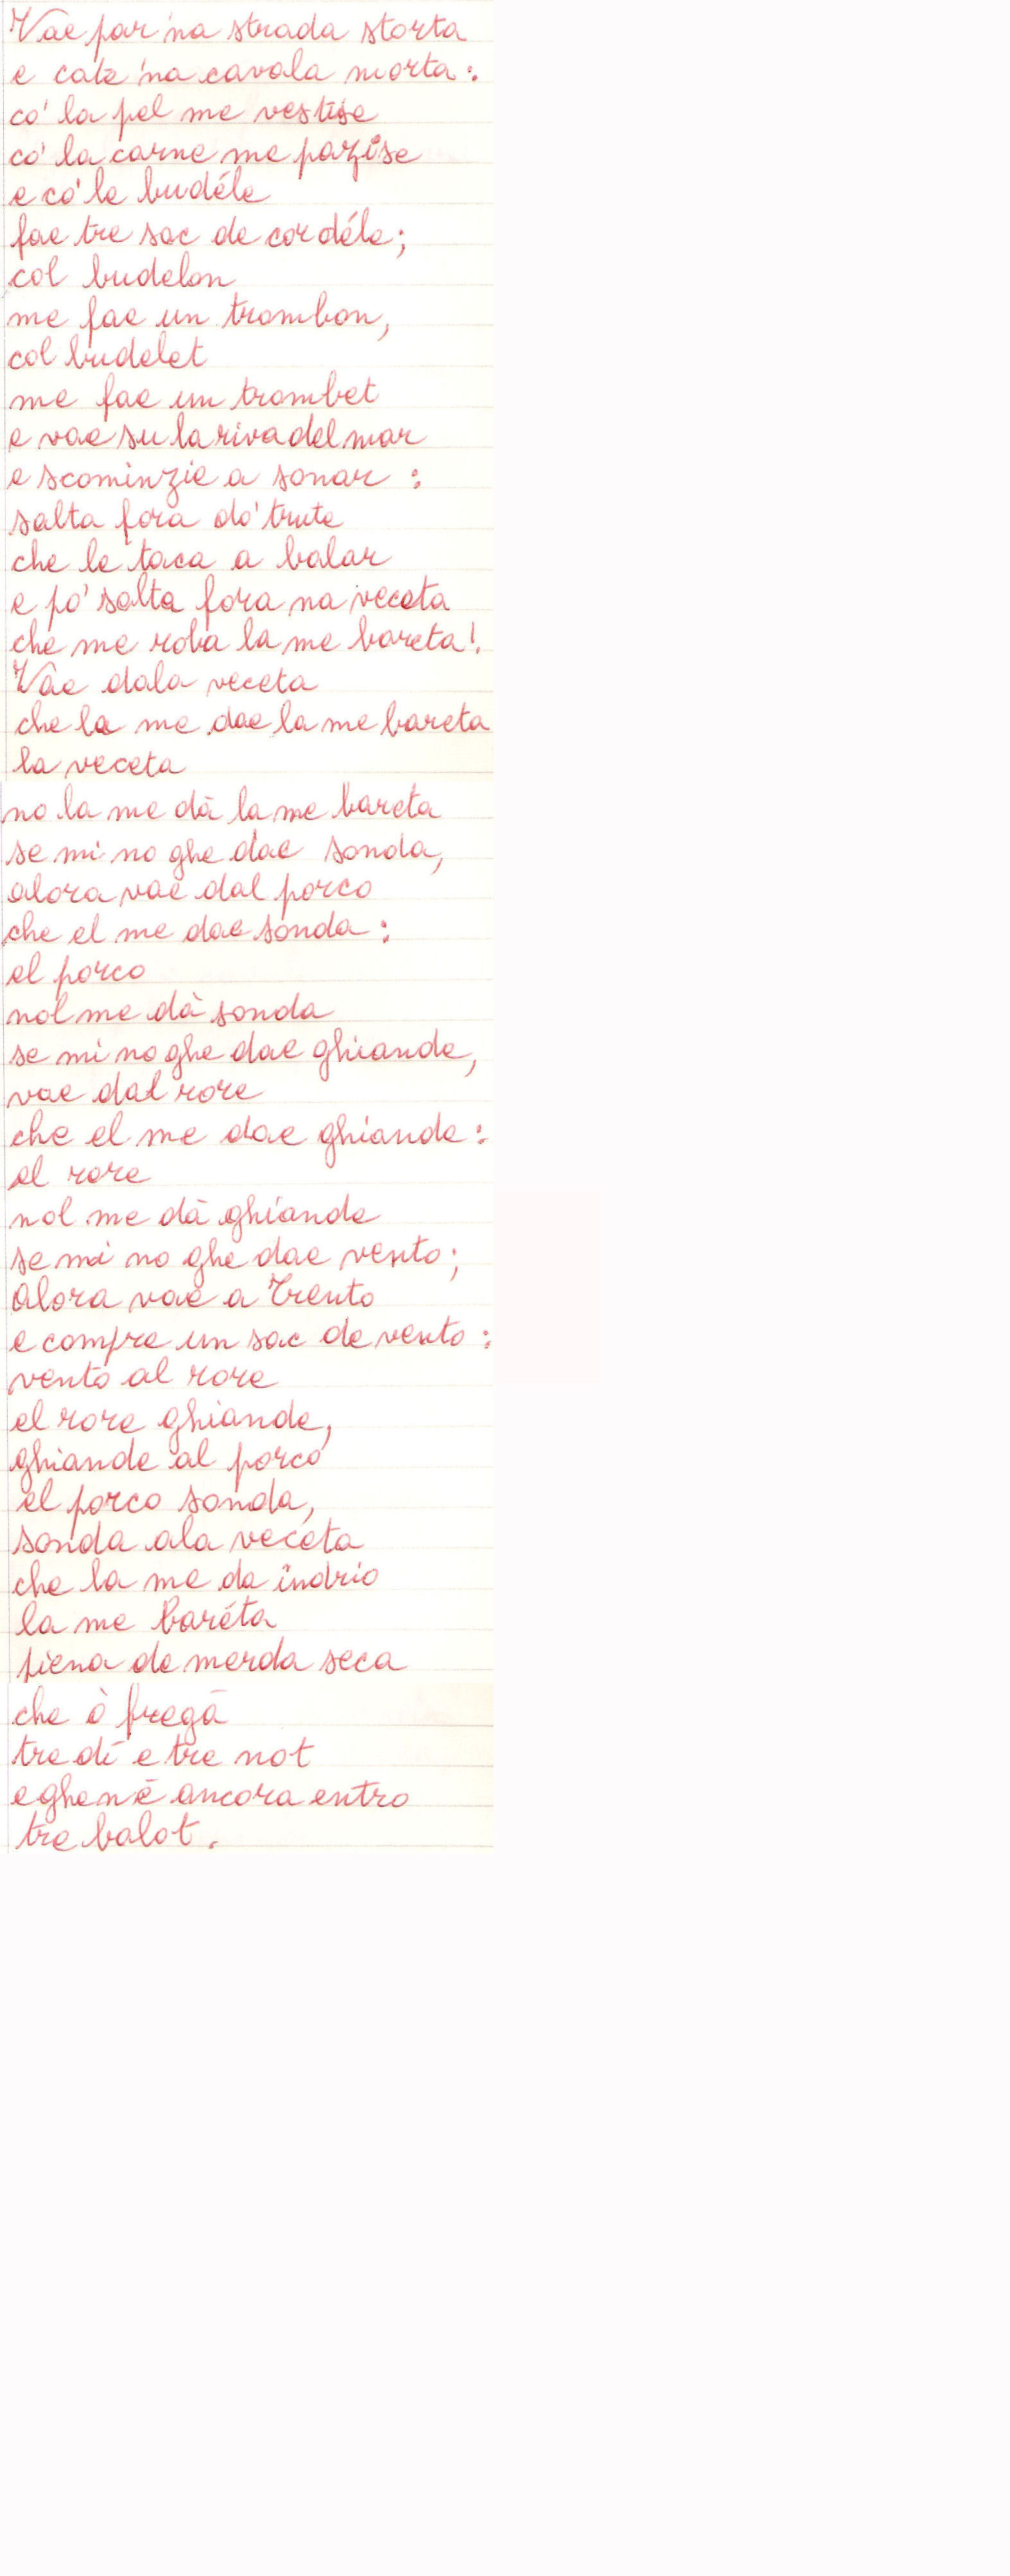 Vae par 'na strada storta
e cate 'na cavala morta:
co' la pel me vestise
co' la carne me pazise
e co' le budéle
fae tre sac de cordéle;
col budelon
me fae un trombon,
col budelet
me fae un trombet
e vae su la riva del mar
e scominzie a sonar:
salta fora do' trute
che le taca a balar
e po' salta fora na veceta
che me roba la me bareta!
Vae dala veceta
che la me dae la me bareta
la veceta
no la me dà la me bareta
se mi no ghe dae sonda,
alora vae dal porco
che el me dae sonda:
el porco
nol me dà sonda
se mi no ghe dae ghiande,
vae dal rore
che el me dae ghiande:
el rore
nol me dà ghiande
se mi no ghe dae vento;
alora vae a Trento
e compre un sac de vento:
vento al rore
el rore ghiande,
ghiande al porco
el porco sonda,
sonda ala veceta
che la me da indrio
la me baréta
piena de merda seca
che ò fregà
tre dì e tre not
e ghen è ancora entro
tre balot.